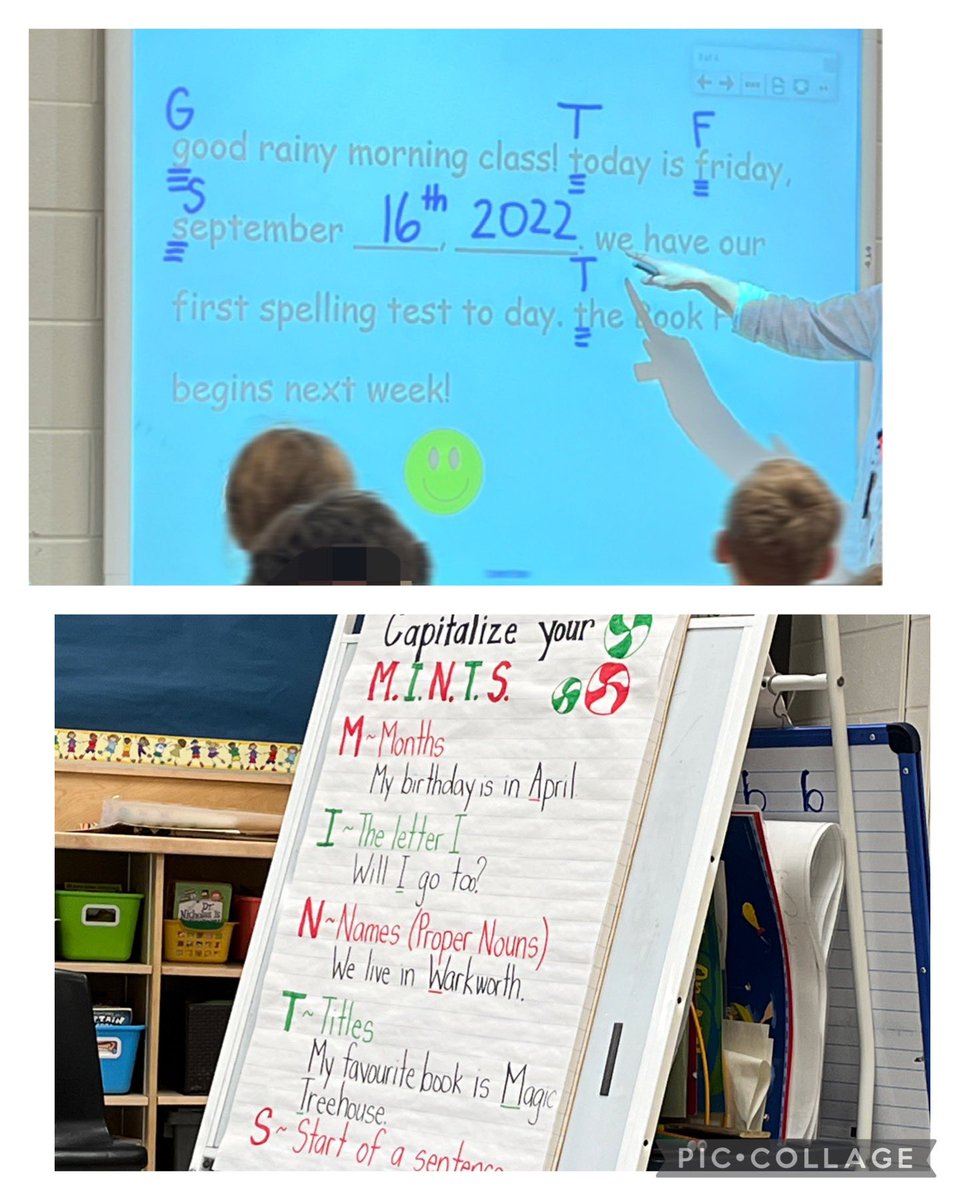 G T F
good rainy morning class! today is friday,
S
september 16th, 2022. we have our
T
first spelling test to day. the Book
begins next week!
Capitalize your
M.I.N.T.S.
M~Months
My birthday is in April
I~The letter I
Will I go too?
N~Names (Proper Nouns)
We live in Warkworth.
T~Titles
My favourite book is Magic
Treehouse.
S~Start of a sentence
b b
Dr
Nicholas is
PIC•COLLAGE